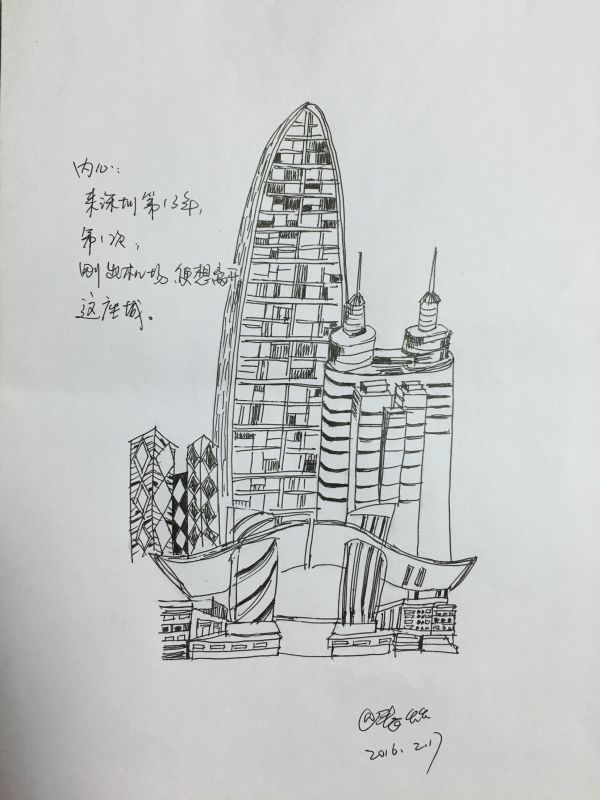 内心：
来深圳第13年，
第1次，
刚出机场、便想离开
这座城。
2016.2.17